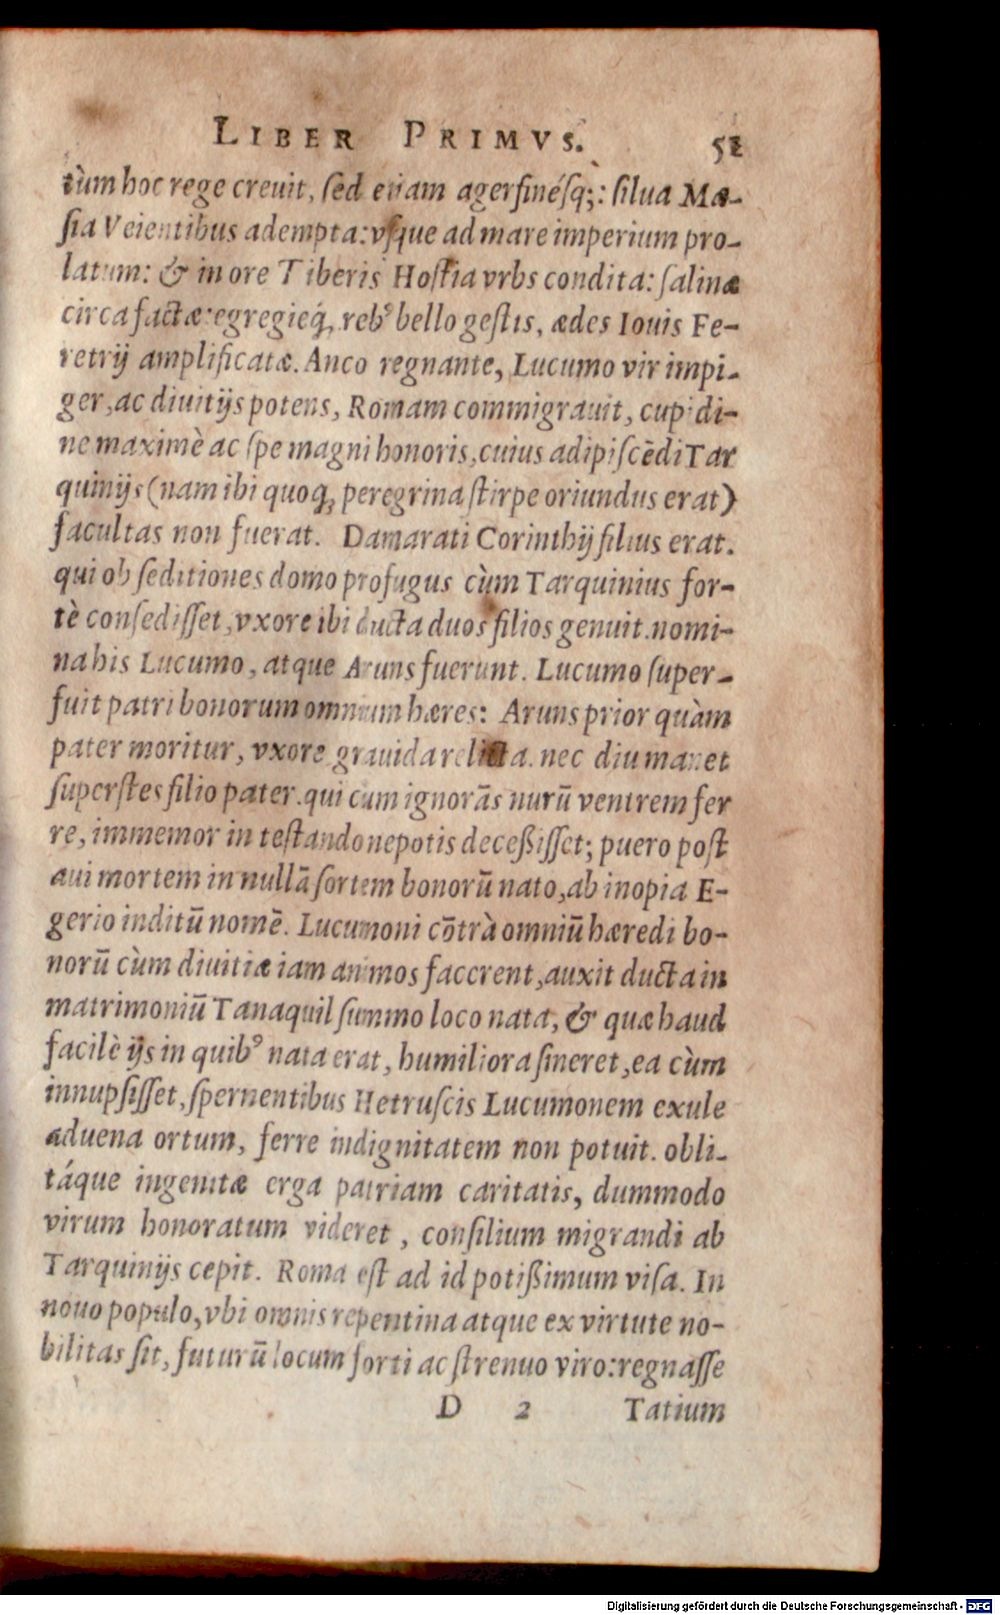 LIBER PRIMVS. 51
tùm hoc rege creuit, sed etiam ager finésq;: silua Mæ-
sia Veientibus adempta: vsque ad mare imperium pro-
latum: & in ore Tiberis Hostia vrbs condita: salinæ
circa factæ: egregieq́; reb⁹ bello gestis, ædes Iouis Fe-
retrij amplificatæ. Anco regnante, Lucumo vir impi-
ger, ac diuitijs potens, Romam commigrauit, cupidi-
ne maximè ac spe magni honoris, cuius adipiscēdi Tar
quinijs (nam ibi quoq; peregrina stirpe oriundus erat)
facultas non fuerat. Damarati Corinthij filius erat.
qui ob seditiones domo profugus cùm Tarquinius for-
tè consedisset, vxore ibi ducta duos filios genuit. nomi-
na his Lucumo, atque Aruns fuerunt. Lucumo super-
fuit patri bonorum omnium hæres: Aruns prior quàm
pater moritur, vxore grauida relicta. nec diu manet
superstes filio pater. qui cum ignorās nurū ventrem fer
re, immemor in testando nepotis deceßisset; puero post
aui mortem in nullā sortem bonorū nato, ab inopia E-
gerio inditū nomē. Lucumoni cōtrà omniū hæredi bo-
norū cùm diuitiæ iam animos facerent, auxit ducta in
matrimoniū Tanaquil summo loco nata, & quæ haud
facilè ijs in quib⁹ nata erat, humiliora sineret, ea cùm
innupsisset, spernentibus Hetruscis Lucumonem exule
aduena ortum, ferre indignitatem non potuit. obli-
táque ingenitæ erga patriam caritatis, dummodo
virum honoratum videret, consilium migrandi ab
Tarquinijs cepit. Roma est ad id potißimum visa. In
nouo populo, vbi omnis repentina atque ex virtute no-
bilitas sit, futurū locum forti ac strenuo viro: regnasse
D 2 Tatium
Digitalisierung gefördert durch die Deutsche Forschungsgemeinschaft - DFG